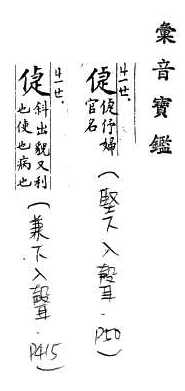 彙音寶鑑
ㄐㄧㄝ.
倢 倢伃婦官名 (堅下入聲. P50)
ㄐㄧㄝ.
倢 斜出貌又利也使也病也 (兼下入聲. P415)